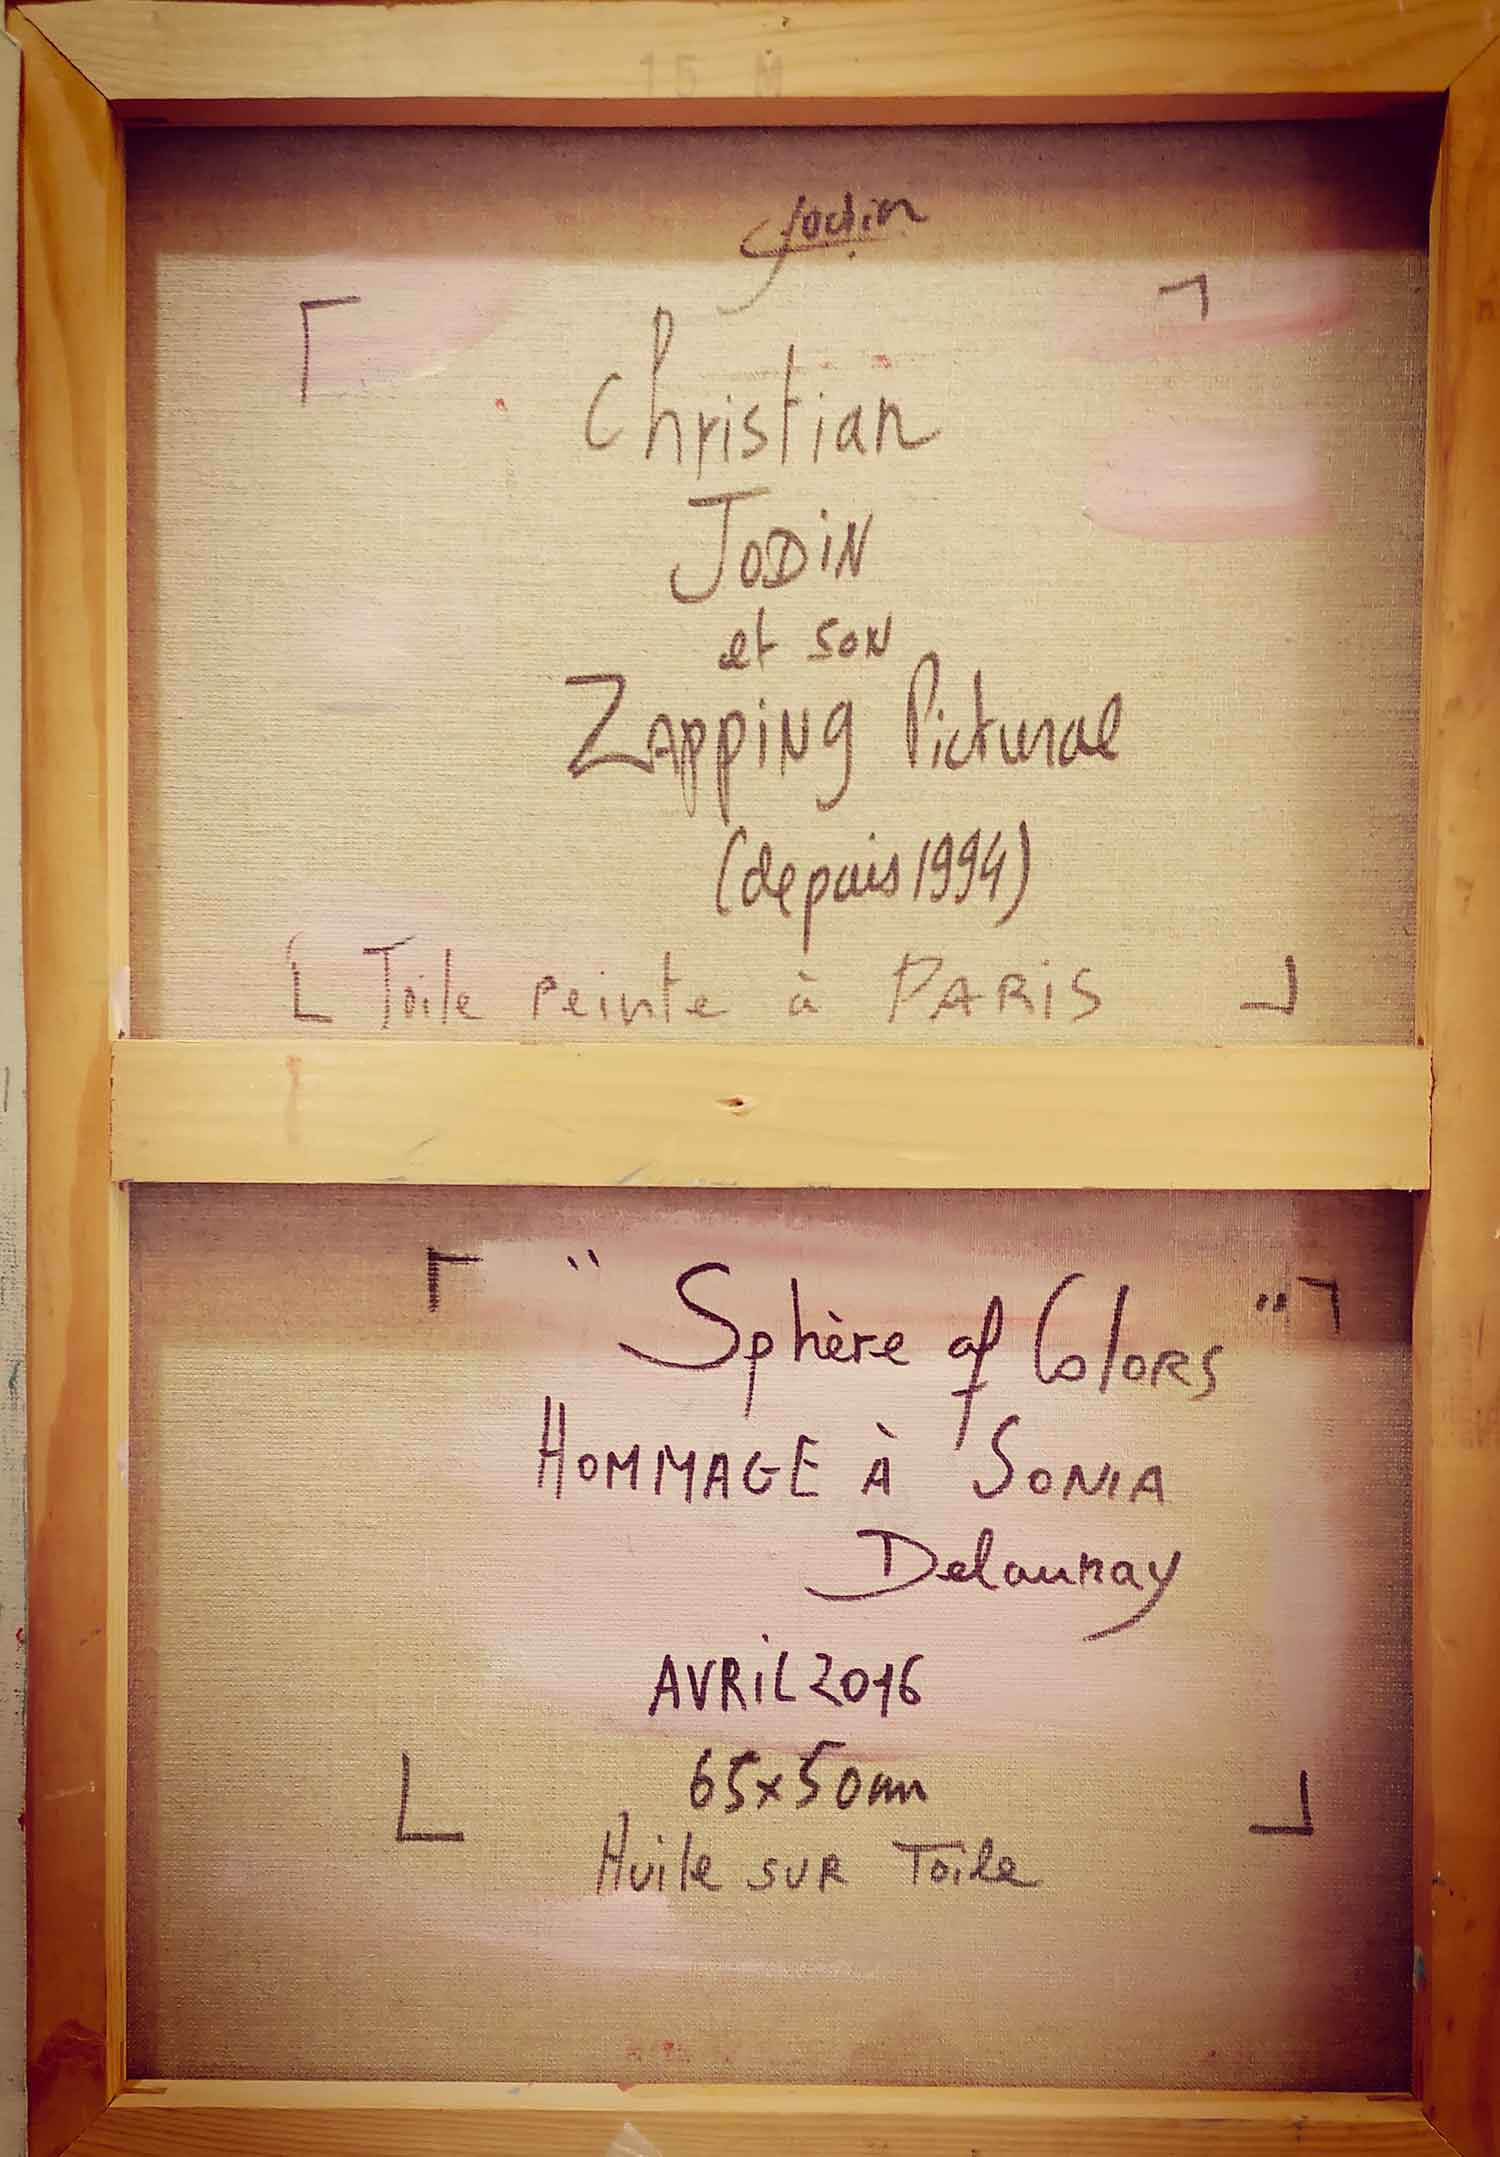 15 M
Jodin
Christian
JODiN
et SON
ZAppiNg Pictural
(depuis 1994)
Toile peinte à PARiS
"Sphère of Colors"
HOMMAGE À SONIA
Delaunay
AVRiL 2016
65x50cm
Huile SUR Toile